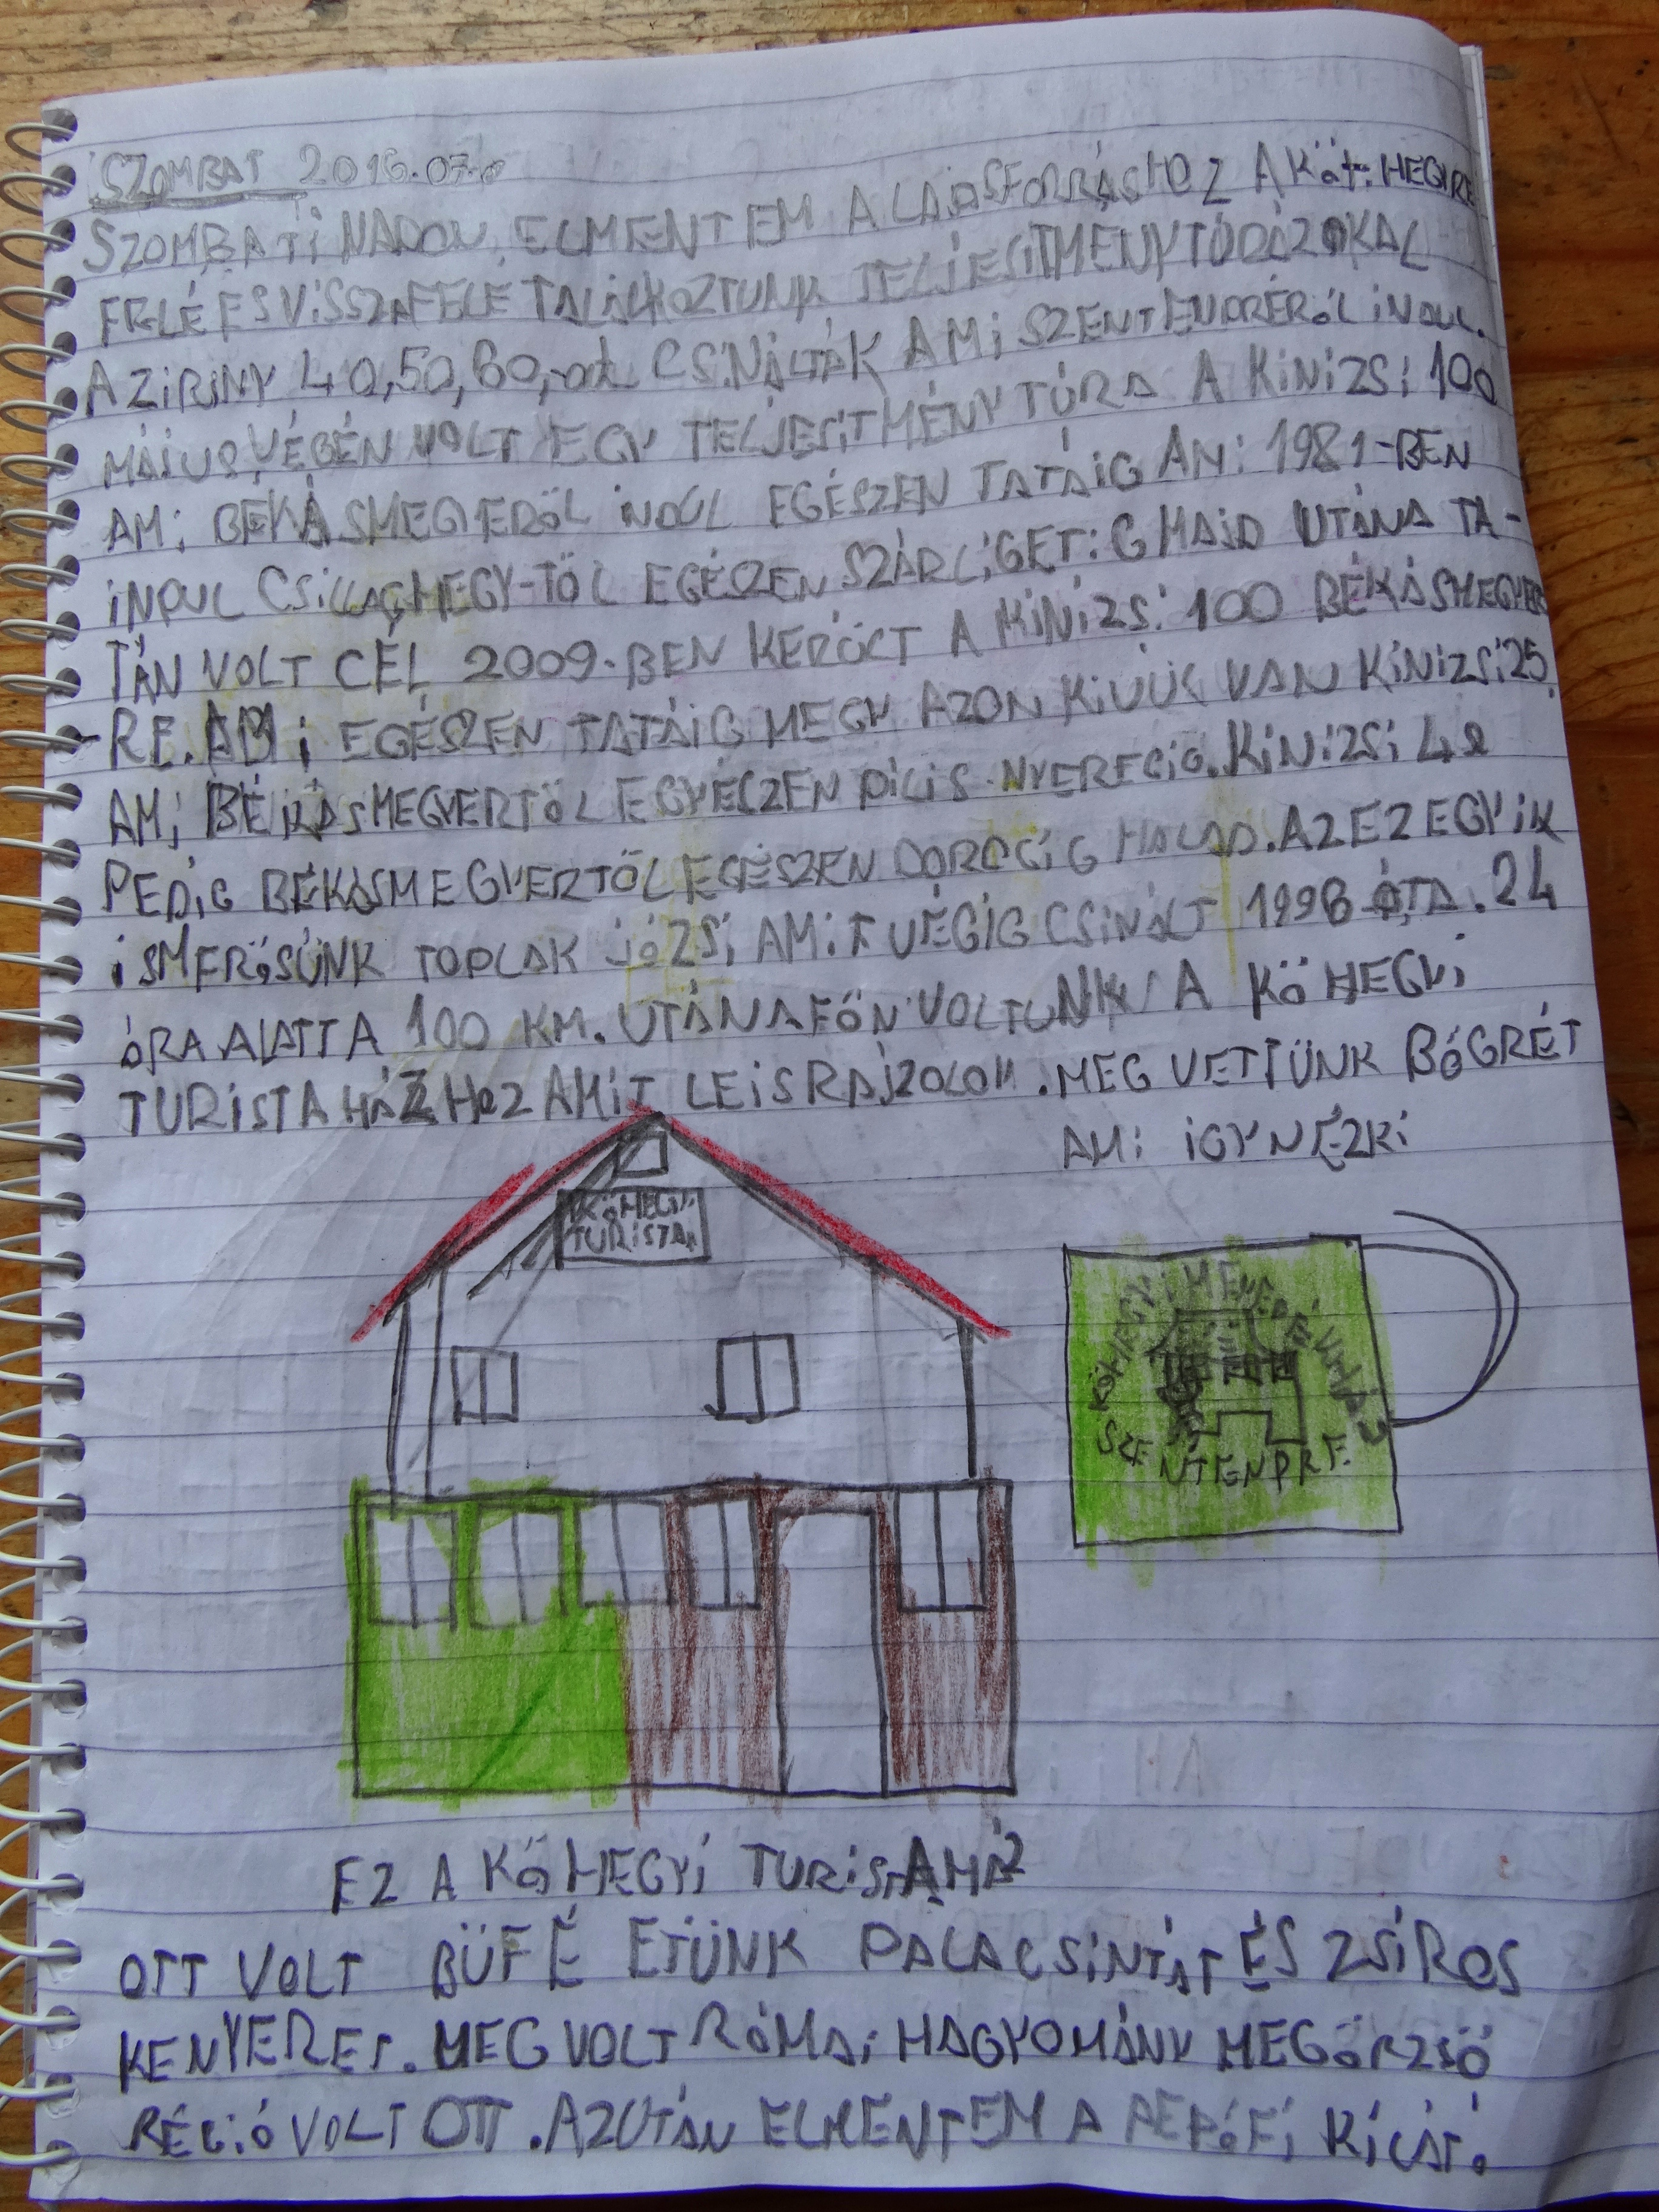 SZOMBAT 2016.07.
SZOMBATI NAPON ELMENTEM A LAJOSFORRÁSHOZ A HEGYRE
FELÉ ES VISSZAFELÉ TALÁLKOZTUNK TELJESITMÉNYTÚRÁZOKAL
A ZIRINY 40,50,60,-at CSINÁLTÁK AMI SZENTENDRÉRŐL INDUL.
MÁJUS VÉBÉN VOLT EGY TELJESITMÉNYTÚRA A KINIZSI 100
AMI BÉKÁSMEGERŐL INDUL EGÉSZEN TATÁIG AMI 1981-BEN
INDUL CSILLAGHEGY-TŐL EGÉSZEN SZÁRLIGETIG MAJD UTÁNA TA-
TÁN VOLT CÉL 2009-BEN KERÖLT A KINIZSI 100 BÉKÁSMEGYER
-RE. AMI EGÉSZEN TATÁIG MEGY AZON KIVÜL VAN KINIZSI 25,
AMI BÉKÁSMEGYERTŐL EGYÉSZEN PILIS-NYEREGIG. KINIZSI 40
PEDIG BÉKÁSMEGYERTŐL EGÉSZEN DOROGIG HALAD. AZ EZ EGYIK
ISMERŐSÜNK TOPLAK JÓZSI AMIT VÉGIG CSINÁLT 1996 ÓTA. 24
ÓRA ALATT A 100 KM. UTÁNA FÖN VOLTUNK A KŐHEGYI
TURISTAHÁZHOZ AMIT LEISRAJZOLOK. MEG VETTÜNK BÖGRÉT
AMI IGYNÉZKI
KŐHEGYI
TURISTAH
KŐHEGYI MENEDÉKHÁZ
SZENTENDRE
EZ A KŐHEGYI TURISTAHÁZ
OTT VOLT BÜFÉ ETÜNK PALACSINTÁT ÉS ZSÍROS
KENYERET. MEG VOLT RÓMAI HAGYOMÁNY MEGÖRZSŐ
RÉGIÓ VOLT OTT. AZUTÁN ELMENTEM A PETŐFI KILÁTÓ